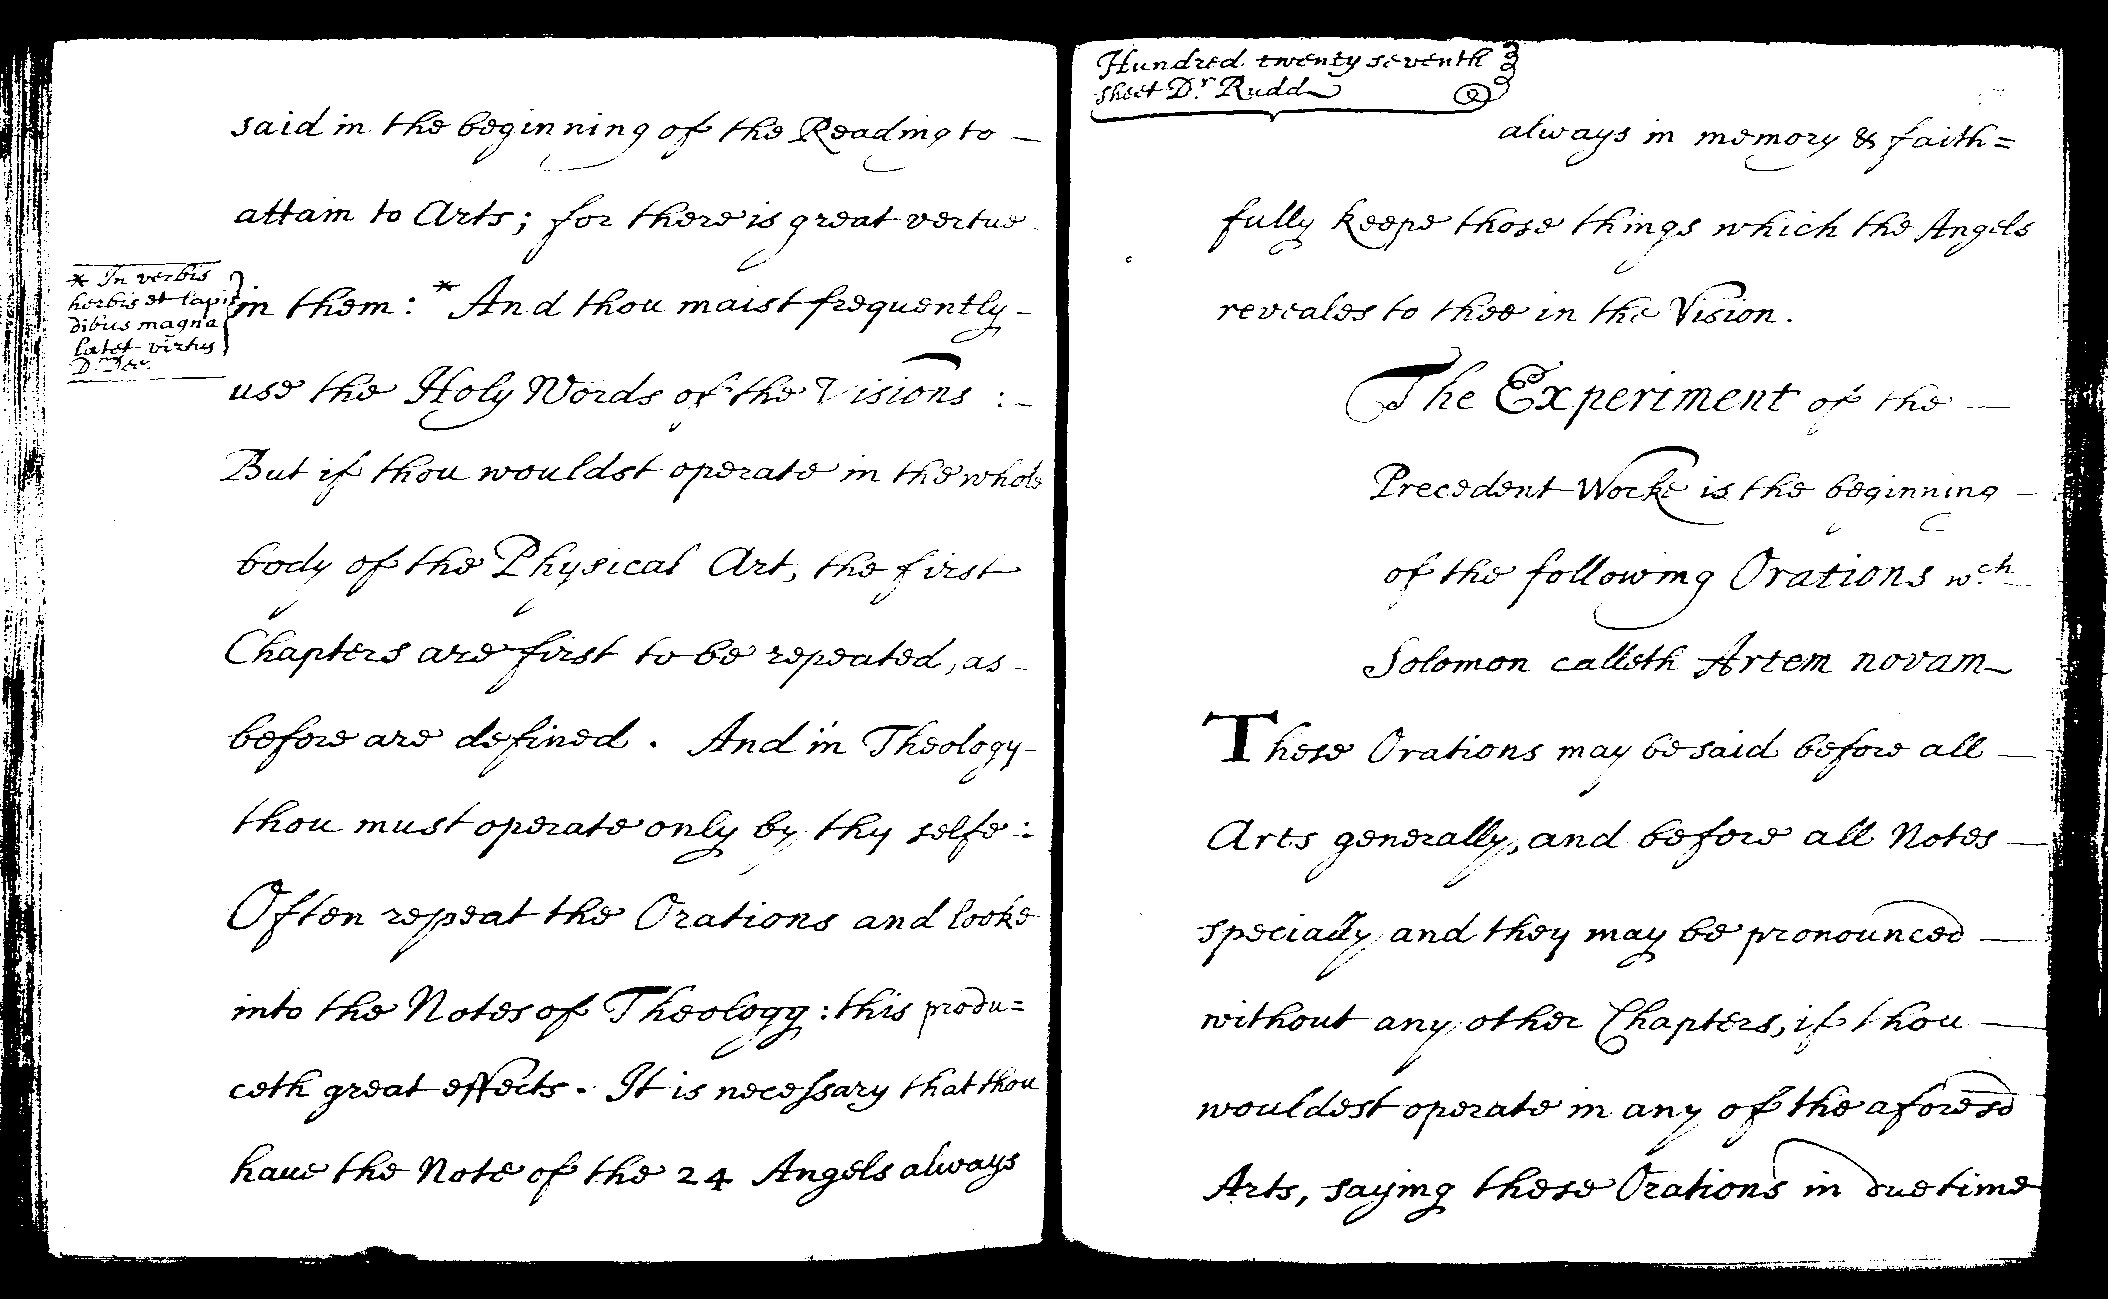 said in the beginning of the Reading to —
attain to Arts; for there is great vertue
* In verbis
herbis et lapi
dibus magna
latet virtus
in them: * And thou maist frequently –
use the Holy Words of the Visions :–
But if thou wouldst operate in the whole
body of the Physical Art, the first
Chapters are first to be repeated, as –
before are defined . And in Theology –
thou must operate only by thy selfe :
Often repeat the Orations and looke
into the Notes of Theology : this produ=
ceth great effects . It is necessary that thou
haue the Note of the 24 Angels always
Hundred twenty seventh
sheet Dr Rudd
always in memory & faith=
fully keepe those things which the Angels
reveales to thee in the Vision .
The Experiment of the —
Precedent Worke is the beginning –
of the following Orations wch
Solomon calleth Artem novam
These Orations may be said before all —
Arts generally, and before all Notes —
specially and they may be pronounced —
without any other Chapters, if thou —
wouldest operate in any of the aforesd
Arts, saying these Orations in due time